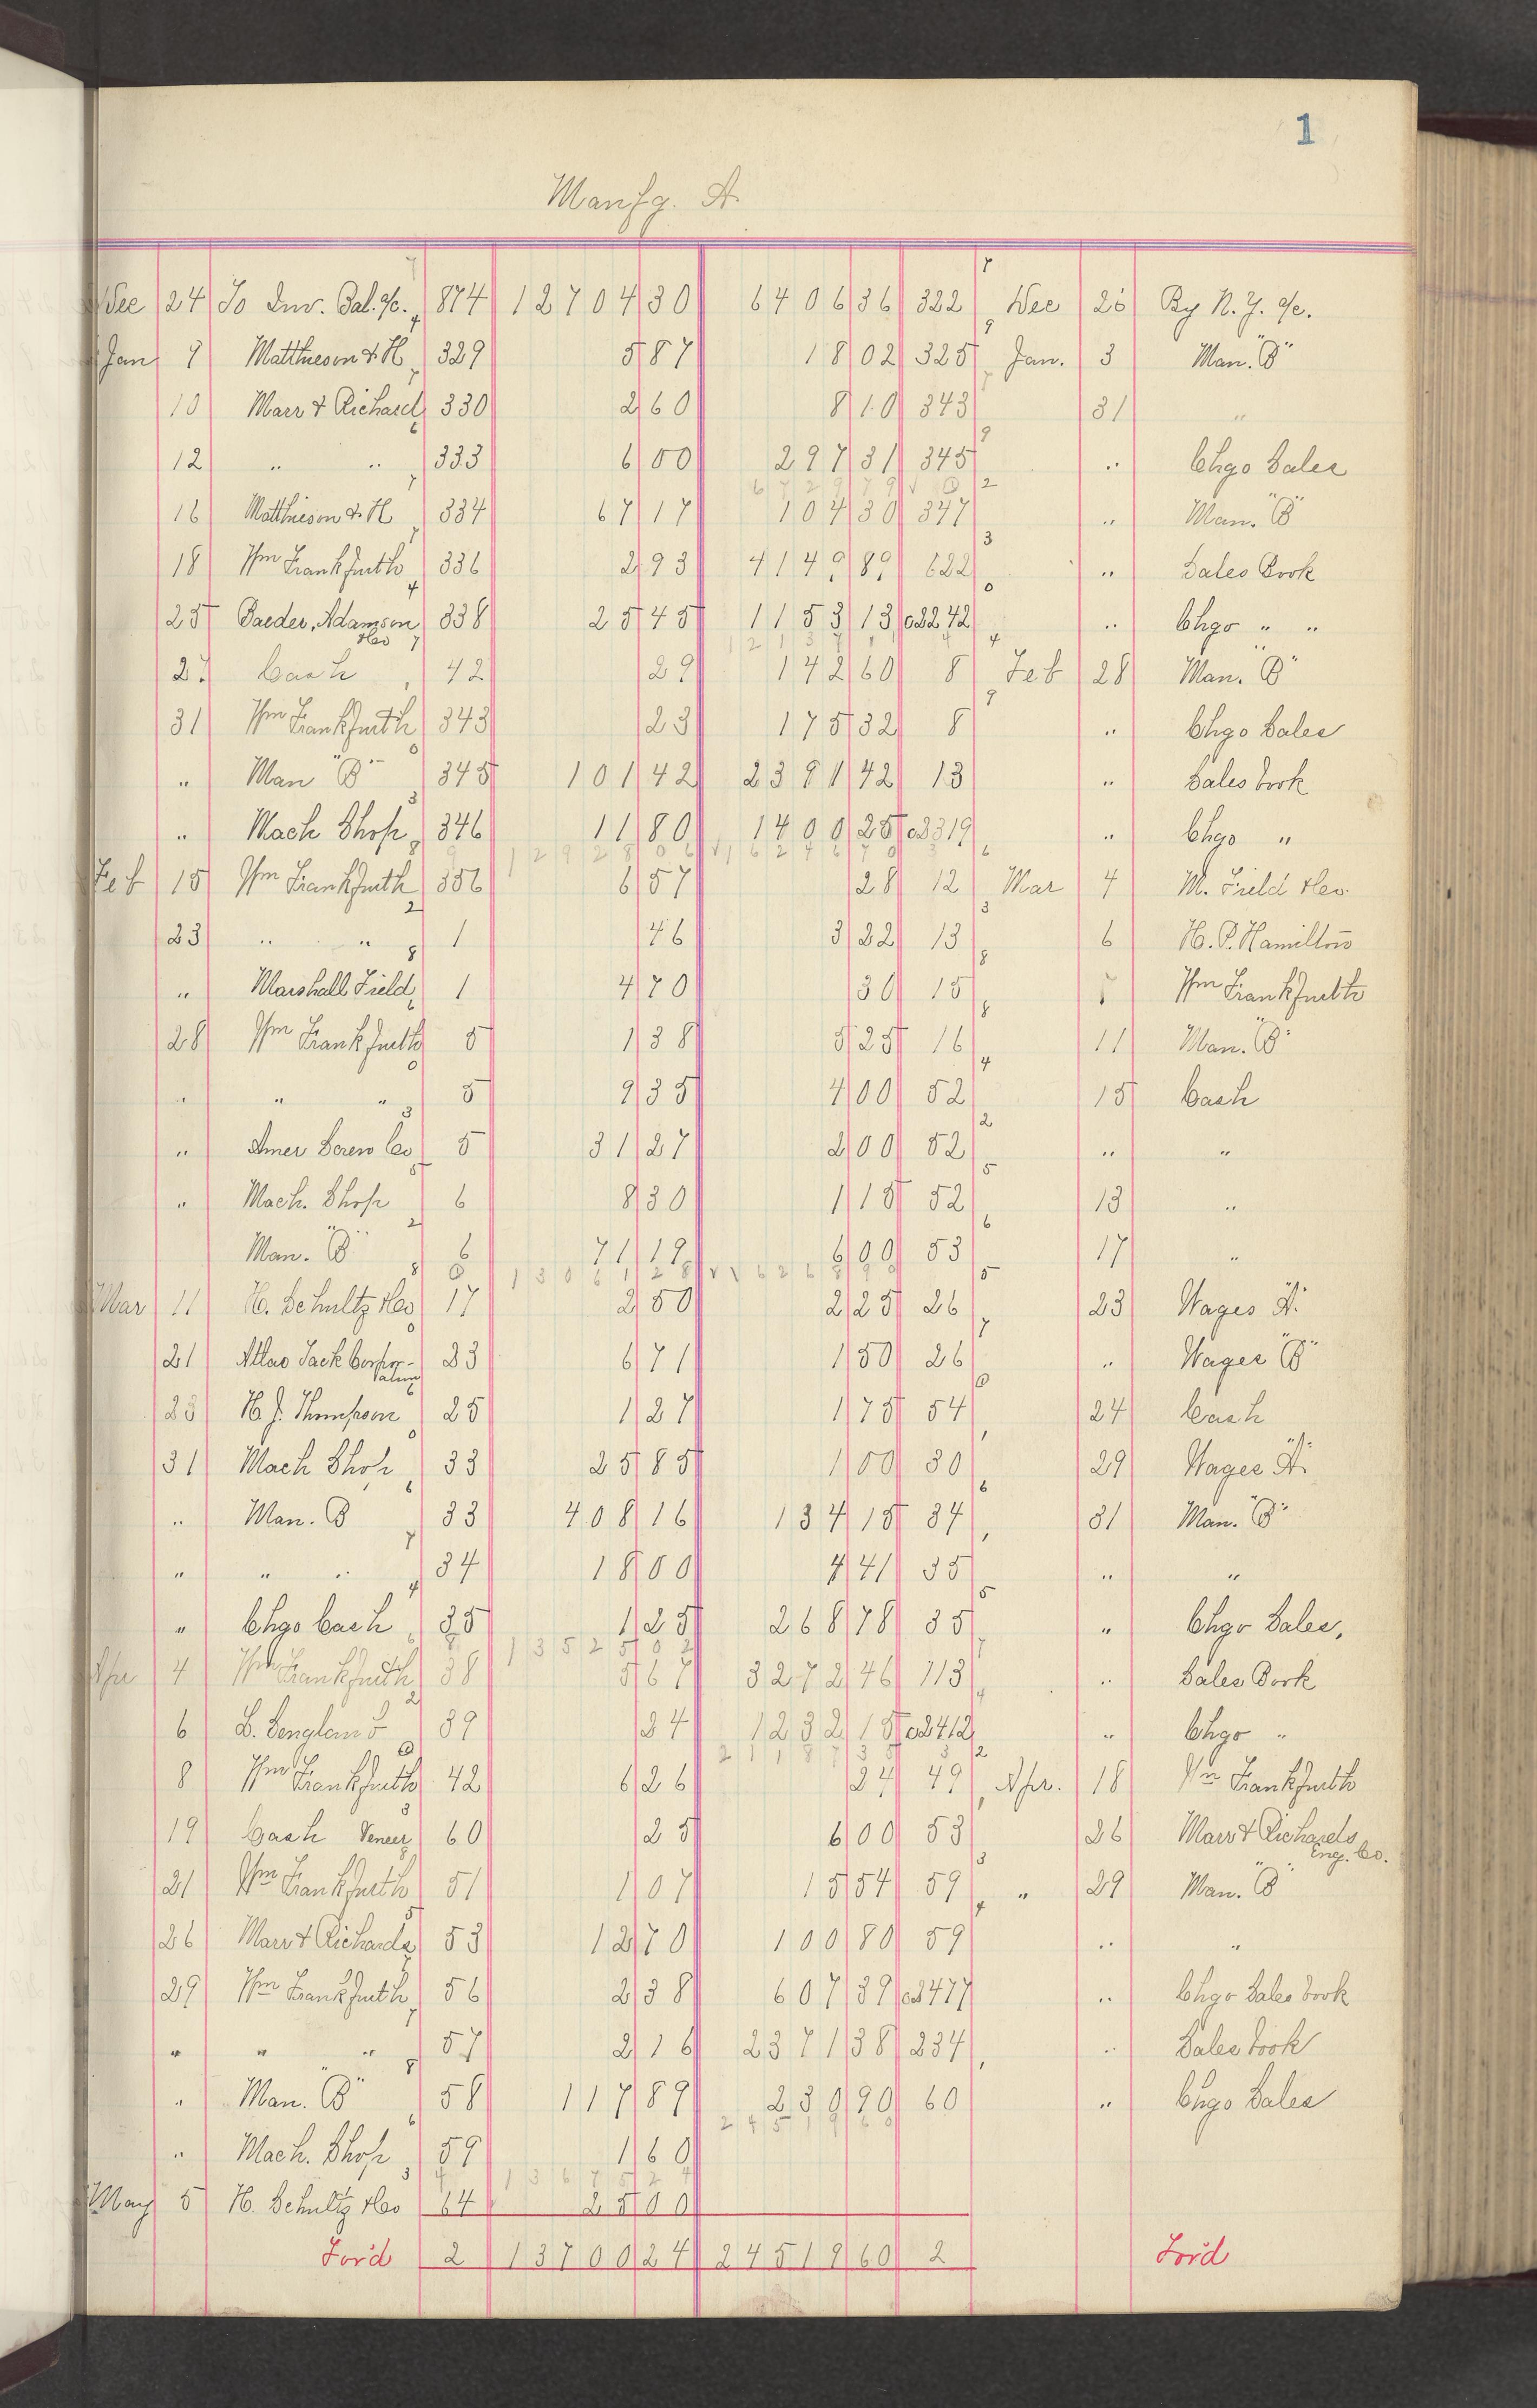 1
Manfg. A.
Dec 24 To Inv. Bal. a/c. 874 12704 30 6406 36 322 Dec 26 By N. Y. a/c.
Jan 9 Matthieson & H 329 5 87 18 02 325 Jan. 3 Man. "B"
10 Marr & Richard 330 2 60 8 10 343 31 "
12 " " 333 6 00 297 31 345 " Chgo Sales
16 Matthieson & H 334 67 17 104 30 347 " Man. "B"
18 Wm Frankfurth 336 2 93 4149 89 622 " Sales Book
25 Baeder, Adamson &Co 338 25 45 1153 13 242 " Chgo " "
27 Cash 42 29 142 60 8 Feb 28 Man. "B"
31 Wm Frankfurth 343 23 175 32 8 " Chgo Sales
" Man "B" 345 101 42 2391 42 13 " Sales book
" Mach Shop 346 11 80 1400 25 319 " Chgo "
Feb 15 Wm Frankfurth 356 6 57 28 12 Mar 4 M. Field &Co.
23 " " 1 46 3 22 13 6 H. P. Hamilton
" Marshall Field 1 4 70 30 15 Wm Frankfurth
28 Wm Frankfurth 5 1 38 5 25 16 11 Man. "B"
" " " 5 9 35 4 00 52 15 Cash
" Amer Screw Co 5 31 27 2 00 52 " "
" Mach. Shop 6 8 30 1 15 52 13 "
Man. "B" 6 71 19 6 00 53 17 "
Mar 11 H. Schultz &Co 17 2 50 2 25 26 23 Wages "A"
21 Atlas Tack Corpor- 23 6 71 1 50 26 " Wages "B"
25 H. J. Thompson 25 1 27 1 75 54 24 Cash
31 Mach Shop 33 25 85 1 00 30 29 Wages "A"
" Man. B 33 408 16 134 15 34 31 Man. "B"
" " " 34 18 00 4 41 35 " "
" Chgo Cash 35 1 25 268 78 35 " Chgo Sales,
Apr 4 Wm Frankfurth 38 5 67 3272 46 113 " Sales Book
6 39 34 1232 15 412 " Chgo "
8 Wm Frankfurth 42 6 26 24 49 Apr. 18 Wm Frankfurth
19 Cash Veneer 60 25 6 00 53 26 Marr & Richards
Eng. Co.
21 Wm Frankfurth 51 1 07 15 54 59 " 29 Man. "B"
26 Marr & Richards 53 12 70 100 80 59 " "
29 Wm Frankfurth 56 2 38 607 39 477 " Chgo Sales book
" " " 57 2 16 2371 38 234 " Sales book
" Man. "B" 58 117 89 230 90 60 " Chgo Sales
" Mach. Shop 59 1 60
May 5 H. Schultz &Co 64 25 00
For'd 2 13700 24 24519 60 2 For'd